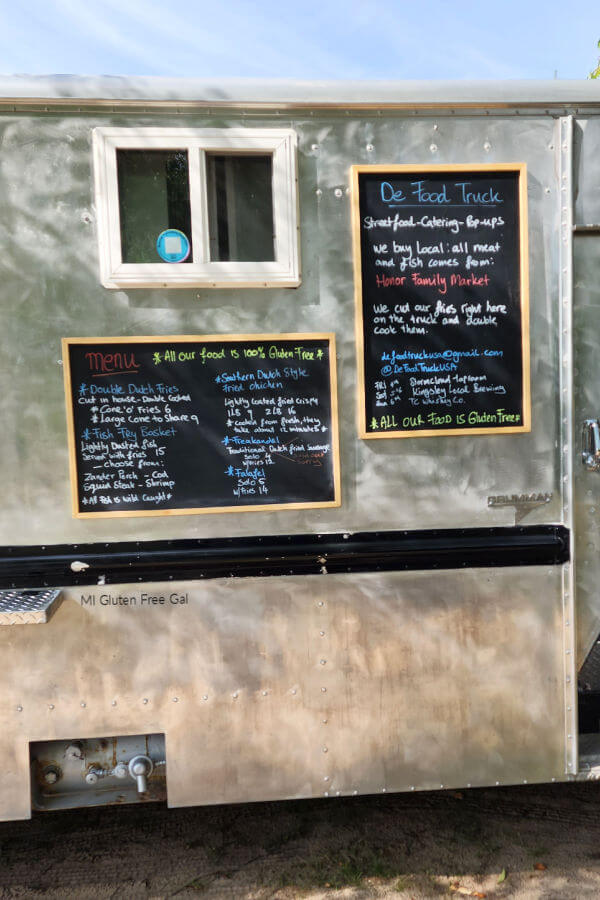 De Food Truck
Streetfood-Catering-Pop-ups
we buy Local: all meat
and fish comes from:
Honor Family Market
We cut our fries right here
on the truck and double
cook them.
defoodtruckusa@gmail.com
@DeFoodTruckUSA
Stormcloud-taproom
Kingsley Local Brewing
TC Whiskey Co.
*ALL OUR FOOD IS Gluten Free*
menu
*All our food is 100% Gluten Free*
*Double Dutch Fries
Cut in house-Double Cooked
*Cone 'o' Fries 6
*Large cone to share 9
*Fish Fry Basket
Lightly Dusted fish
Served with fries 15
-choose from:
Zander Perch - Cod
Squid Steak - Shrimp
*All Fish is Wild Caught*
*Southern Dutch Style
Fried chicken
Lightly coated fried crispy
1LB 9 2LB 16
*cooked from fresh, they
take about 12 minutes*
*Freakandel
Traditional Dutch fried Sausage
Solo
w/fries 12
Sorry
*Falafel
Solo 5
w/fries 14
GRUMMAN
MI Gluten Free Gal